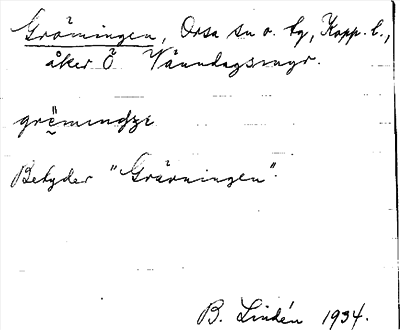 Grömningen, Orsa sn o. tg, Kopp. l.,
åker Ö Vånndagsmyr.
grömindʒi
Betyder "Grävningen".
B. Lindén 1934.